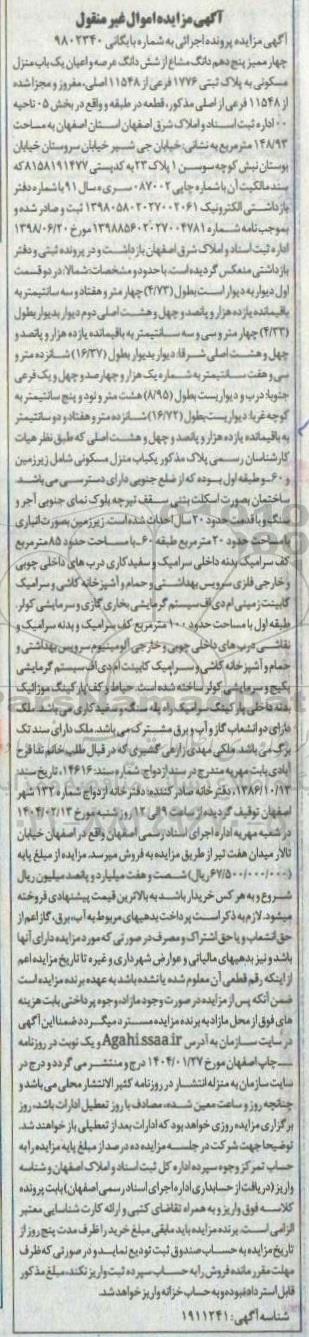 آگهی مزایده اموال غیر منقول
آگهی مزایده پرونده اجرائی به شماره بایگانی ۹۸۰۲۳۴۰
چهار ممیز پنج دهم دانگ مشاع از شش دانگ عرصه و اعیان یک باب منزل
مسکونی به پلاک ثبتی ۱۷۷۶ فرعی از ۱۱۵۴۸ اصلی، مفروز و مجزا شده
از ۱۱۵۴۸ فرعی از اصلی مذکور، قطعه در طبقه و واقع در بخش ۰۵ ناحیه
۰۰ اداره ثبت اسناد و املاک شرق اصفهان استان اصفهان به مساحت
۱۴۸/۹۳ مترمربع به نشانی: خیابان جی شیر خیابان سروستان خیابان
بوستان نبش کوچه سوسن ۱ پلاک ۲۳ به کدپستی ۸۱۵۸۱۹۱۴۷۷ که
سند مالکیت آن با شماره چاپی ۰۸۷۰۰۲ سری ه سال ۹۱ با شماره دفتر
بازداشتی الکترونیک ۱۳۹۸۰۵۸۰۲۰۲۷۰۰۲۰۶۱ ثبت و صادر شده و
بموجب نامه شماره ۱۳۹۸۸۵۶۰۲۰۲۷۰۰۴۷۸۱ مورخ ۱۳۹۸/۰۶/۲۰
اداره ثبت اسناد و املاک شرق اصفهان بازداشت و در پرونده ثبتی و دفتر
بازداشتی منعکس گردیده است. با حدود و مشخصات: شمالا: در دو قسمت
اول دیوار به دیوار است بطول (۴/۷۳) چهار متر و هفتاد و سه سانتیمتر به
باقیمانده یازده هزار و پانصد و چهل و هشت اصلی دوم دیوار بدیوار بطول
(۴/۳۳) چهار متر و سی و سه سانتیمتر به باقیمانده یازده هزار و پانصد و
چهل و هشت اصلی شرقا: دیوار بدیوار بطول (۱۶/۳۷) شانزده متر و
سی و هفت سانتیمتر به شماره یک هزار و چهارصد و چهل و یک فرعی
جنوبا: درب و دیواریست بطول (۸/۹۵) هشت متر و نود و پنج سانتیمتر به
کوچه غربا: دیواریست بطول (۱۶/۷۲) شانزده متر و هفتاد و دو سانتیمتر
به باقیمانده یازده هزار و پانصد و چهل و هشت اصلی که طبق نظر هیات
کارشناسان رسمی پلاک مذکور یکباب منزل مسکونی شامل زیرزمین
و ۶۰ـ و طبقه اول بوده که از ضلع جنوبی دارای دسترسی می باشد.
ساختمان بصورت اسکلت بتنی سقف تیرچه بلوک نمای جنوبی آجر و
سنگ و با قدمت حدود ۲۰ سال احداث شده است. زیرزمین بصورت انباری
با مساحت حدود ۲۰ مترمربع طبقه ۶۰ـ با مساحت حدود ۸۵ مترمربع
کف سرامیک بدنه داخلی سرامیک و سفیدکاری درب های داخلی چوبی
و خارجی فلزی سرویس بهداشتی و حمام و آشپزخانه کاشی و سرامیک
کابینت زمینی ام دی اف سیستم گرمایشی بخاری گازی و سرمایشی کولر.
طبقه اول با مساحت حدود ۱۰۰ مترمربع کف سرامیک و بدنه سرامیک و
نقاشی درب های داخلی چوبی و خارجی آلومینیوم سرویس بهداشتی و
حمام و آشپزخانه کاشی و سرامیک کابینت ام دی اف سیستم گرمایشی
پکیج و سرمایشی کولر ساخته شده است. حیاط و کف پارکینگ موزائیک
بدنه داخلی پارکینگ سرامیک راه پله سنگ و سفیدکاری می باشد. ملک
دارای دو انشعاب گاز و آب و برق مشترک می باشد. ملک دارای سند تک
برگ می باشد. ملکی مهدی زارعی گشیری که در قبال طلب خانم ندا فرج
آبادی بابت مهریه مندرج در سند ازدواج: شماره سند: ۱۴۶۱۶، تاریخ سند:
۱۳۸۶/۱۰/۱۳، دفترخانه صادر کننده: دفترخانه ازدواج شماره ۱۳۲ شهر
اصفهان توقیف گردید از ساعت ۹ الی ۱۲ روز شنبه مورخ ۱۴۰۴/۰۲/۱۳
در شعبه مهریه اداره اجرای اسناد رسمی اصفهان واقع در اصفهان خیابان
تالار میدان هفت تیر از طریق مزایده به فروش میرسد. مزایده از مبلغ پایه
(۶۷/۵۰۰/۰۰۰/۰۰۰ ریال) شصت و هفت میلیارد و پانصد میلیون ریال
شروع و به هر کس خریدار باشد به بالاترین قیمت پیشنهادی فروخته
میشود. لازم به ذکر است پرداخت بدهیهای مربوط به آب، برق، گاز اعم از
حق انشعاب و یا حق اشتراک و مصرف در صورتی که مورد مزایده دارای آنها
باشد و نیز بدهیهای مالیاتی و عوارض شهرداری و غیره تا تاریخ مزایده اعم
از اینکه رقم قطعی آن معلوم شده یا نشده باشد به عهده برنده مزایده است
ضمن آنکه پس از مزایده در صورت وجود مازاد، وجوه پرداختی بابت هزینه
های فوق از محل مازاد به برنده مزایده مسترد میگردد ضمنا این آگهی
در سایت سازمان به آدرس Agahi.ssaa.ir و یک نوبت در روزنامه
چاپ اصفهان مورخ ۱۴۰۴/۰۱/۲۷ درج و منتشر می گردد و درج در
سایت سازمان به منزله انتشار در روزنامه کثیرالانتشار محلی می باشد و
چنانچه روز و ساعت معین شده، مصادف با روز تعطیل ادارات باشد، روز
برگزاری مزایده روزی خواهد بود که ادارات بعد از تعطیلی باز خواهند شد.
توضیحا جهت شرکت در جلسه مزایده ده درصد از مبلغ پایه مزایده را به
حساب تمرکز وجوه سپرده اداره کل ثبت اسناد و املاک اصفهان و شناسه
واریز (دریافت از حسابداری اداره اجرای اسناد رسمی اصفهان) بابت پرونده
کلاسه فوق واریز و به همراه تقاضای کتبی و ارائه کارت شناسایی معتبر
الزامی است. برنده مزایده باید مابقی مبلغ خرید را ظرف مدت پنج روز از
تاریخ مزایده به حساب صندوق ثبت تودیع نماید و در صورتی که ظرف
مهلت مقرر مانده فروش را به حساب سپرده ثبت واریز نکند، مبلغ مذکور
قابل استرداد نبوده و به حساب خزانه واریز خواهد شد.
شناسه آگهی: ۱۹۱۱۲۴۱